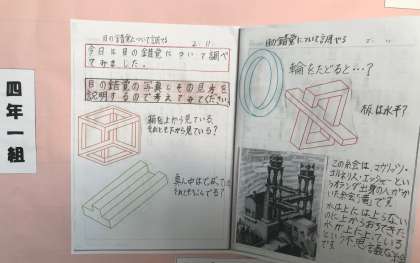 四年一組
目の錯覚について調べる 2.11.
今日は目の錯覚について調べ
てみました。
目の錯覚の写真とその見方を
説明するので考えてみてください。
箱を上から見ている、
それとも下から見ている?
真ん中はでぱってい
それともへこんでる?
目の錯覚について調べる 2.11.
輪をたどると…?
板は水平?
この絵は、マウリッツ・
コルネリス・エッシャーという
オランダ出身の人がか
いた絵「滝」です。
水は上には上らない
のに上からおちてきた
水が上に上っている
という不思議な絵
です。